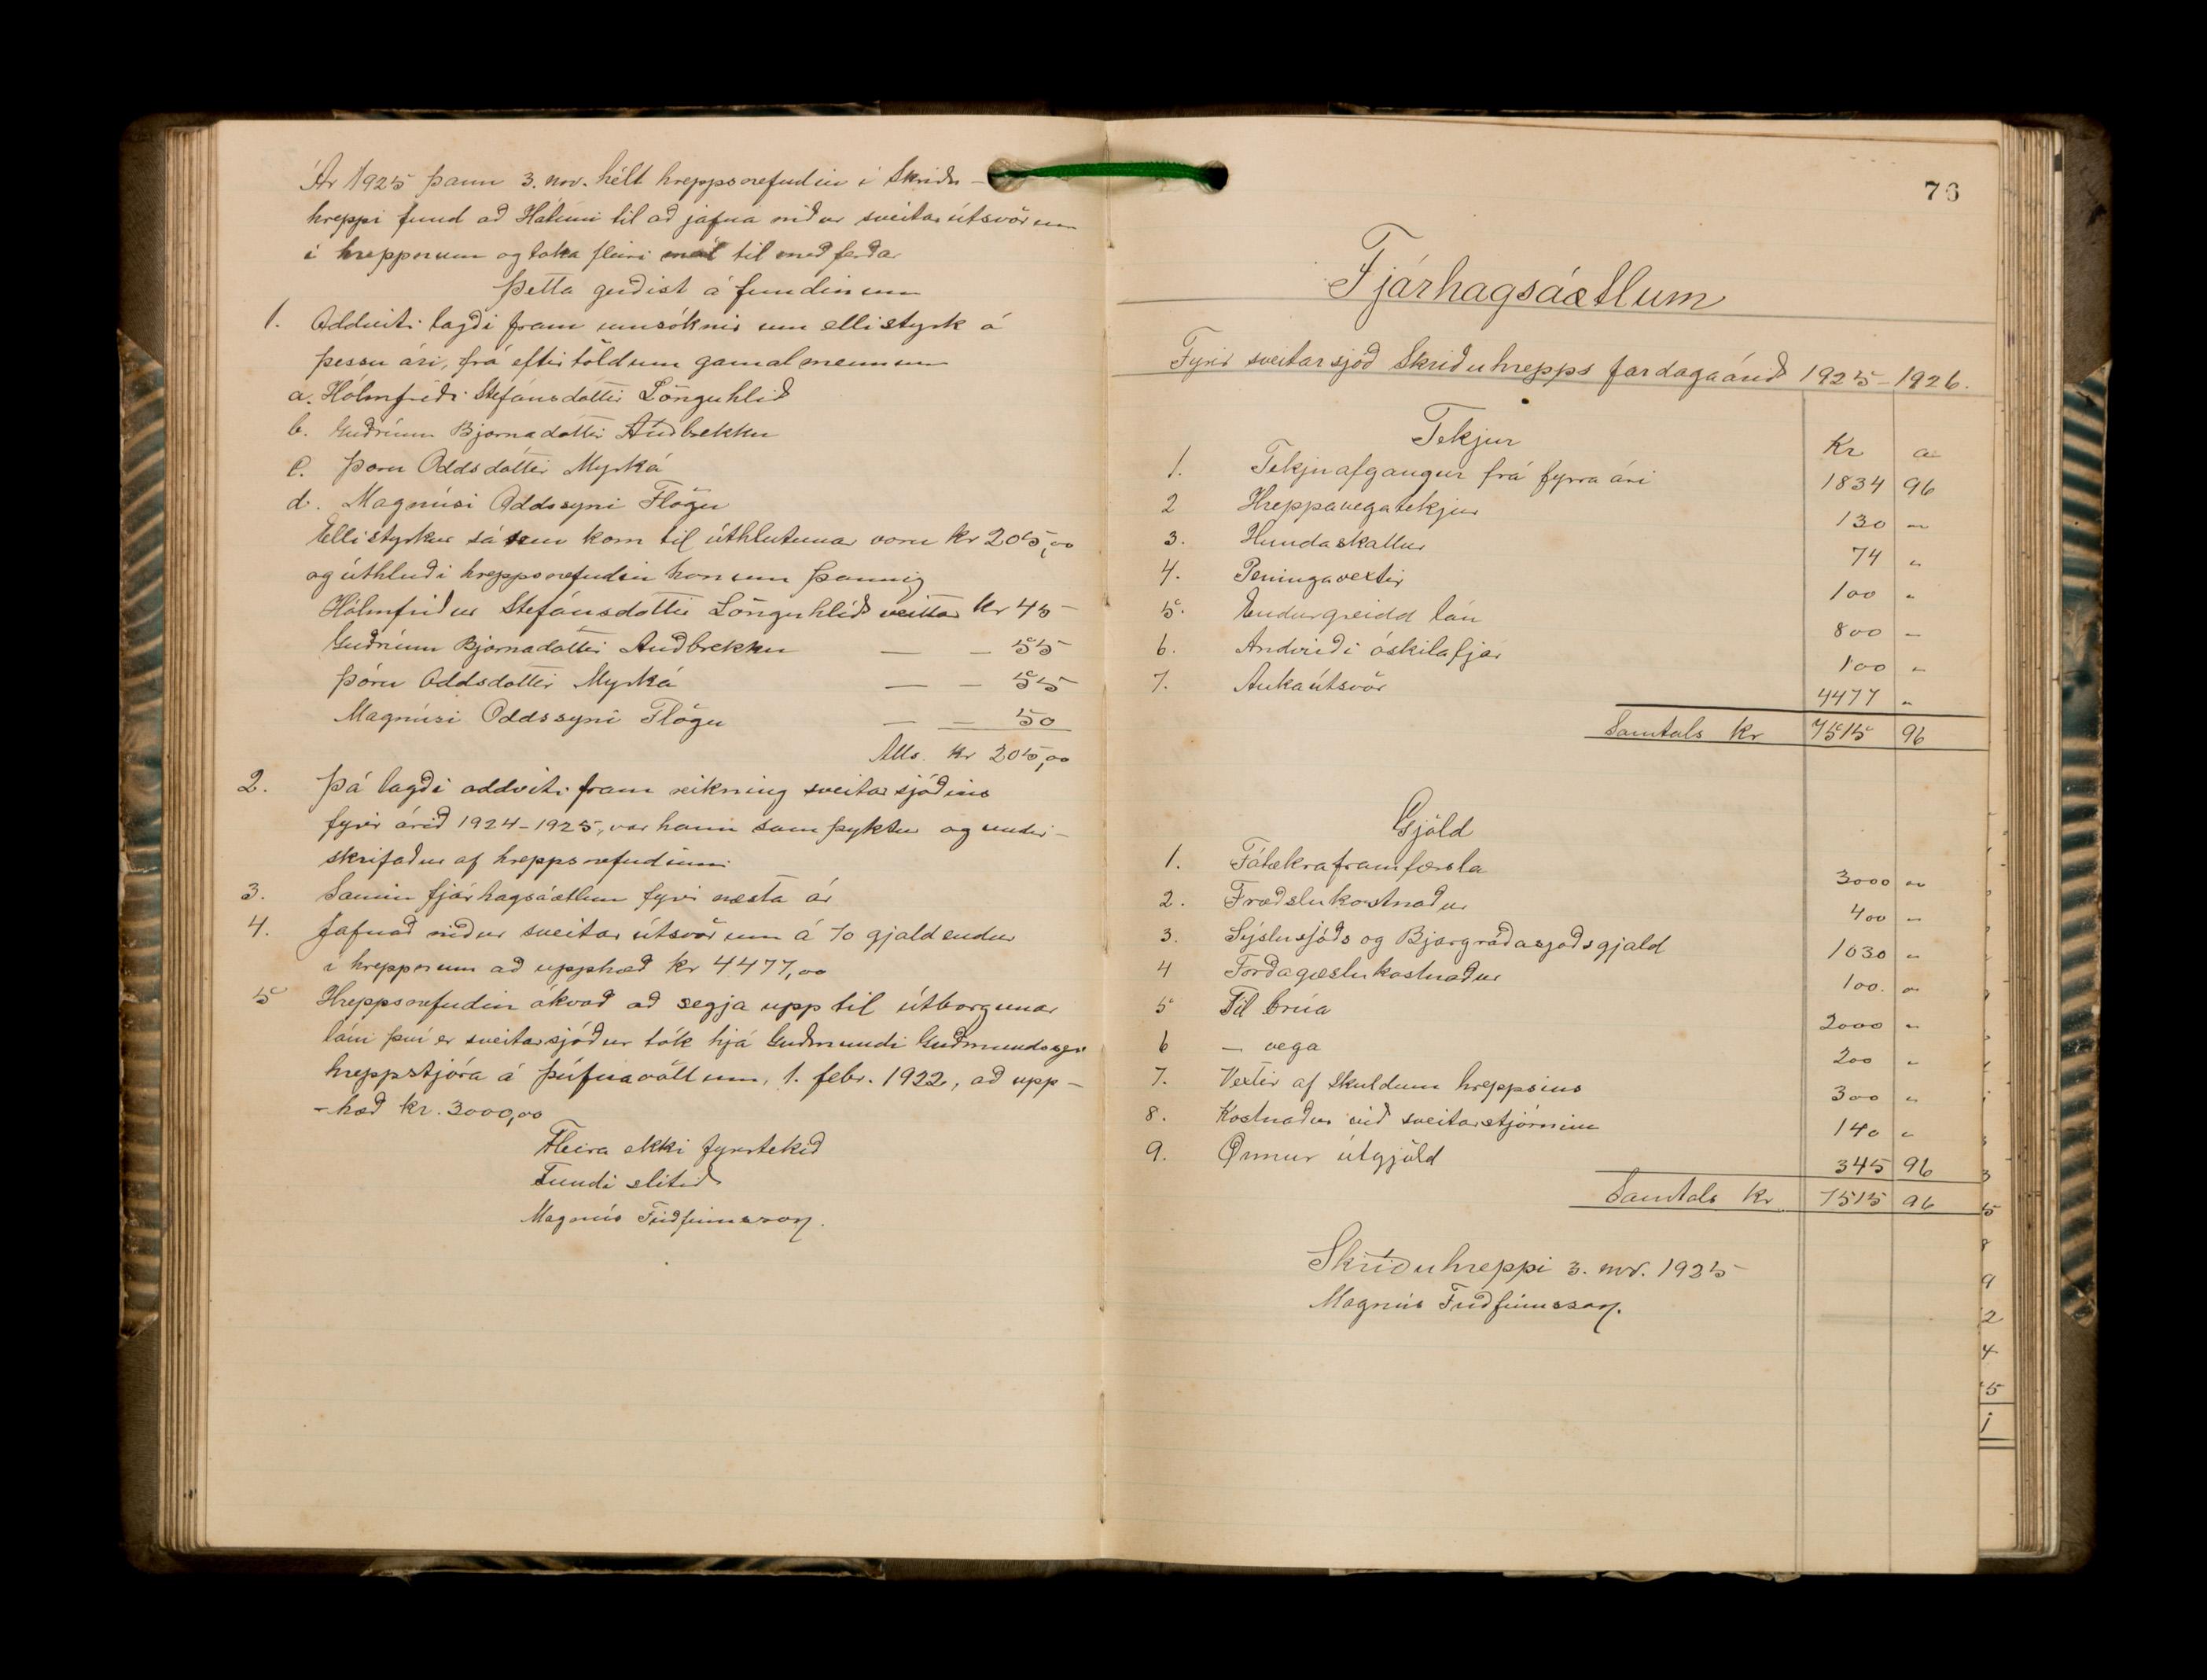 Ár 1925 þann 3. nov. hélt hreppsnefndin í Skriðu-
hreppi fund að Hátúni til að jafna niður sveitarútsvörum
í hreppnum og taka fleiri mál til meðferðar
Þetta gerðist á fundinum
1. Oddviti lagði fram umsóknir um ellistyrk á
þessu ári, frá eftirtöldum gamalmennum
a. Hólmfríði Stefánsdóttir Lönguhlíð
b. Guðrúnu Bjarnadóttir Auðbrekku
c. Þóru Oddsdóttir Myrká
d. Magnúsi Oddssyni Flögu
Ellistyrkur sá sem kom til úthlutunar voru kr 205,00
og úthlutði hreppsnefndin honum þannig
Hólmfríður Stefánsdóttir Lönguhlíð veittar kr 45
Guðrúnu Bjarnadóttir Auðbrekku — — 55
Þóru Oddsdóttir Myrká — — 55
Magnúsi Oddssyni Flögu — — 50
Alls. kr 205,00
2. Þá lagði oddviti fram reikning sveitarsjóðins
fyrir árið 1924-1925, var hann samþyktur og undir-
skrifaður af hreppsnefndinni
3. Samin fjárhagsáætlun fyrir næsta ár
4. Jafnað niður sveitarútsvörum á 70 gjaldendur
í hreppnum að upphæð kr 4477,00
5 Hreppsnefndin ákvað að segja upp til útborgunar
láni því er sveitarsjóður tók hjá Guðmundi Guðmundssyni
hreppstjóra á Þúfnavöllum, 1. febr. 1922, að upp-
-hæð kr. 3000,00
Fleira ekki fyrirtekið
Fundi slitið
Magnús Friðfinnsson.
76
Fjárhagsáætlum
Fyrir sveitarsjóð Skriðuhrepps fardagaárið 1925-1926.
Tekjur Kr a
1. Tekjuafgangur frá fyrra ári 1834 96
2 Hreppavegatekjur 130 "
3. Hundaskattur 74 "
4. Peningavextir 100 "
5. Endurgreidd lán 800 "
6. Andvirði óskilafjár 100 "
7. Aukaútsvör 4477 "
Samtals Kr 7515 96
Gjöld
1. Fátækraframfærsla 3000 "
2. Fræðslukostnaður 400 "
3. Sýslusjóðs og Bjargráðasjóðsgjald 1030 "
4 Forðagæslukostnaður 100. "
5 Til brúa 2000 "
6 — vega 200 "
7. Vextir af skuldum hreppsins 300 "
8. Kostnaður við sveitarstjórnina 140 "
9. Önnur útgjöld 345 96
Samtals Kr. 7515 96
Skriðuhreppi 3. nov. 1925
Magnús Friðfinnsson.
3
5
8
9
2
4
5